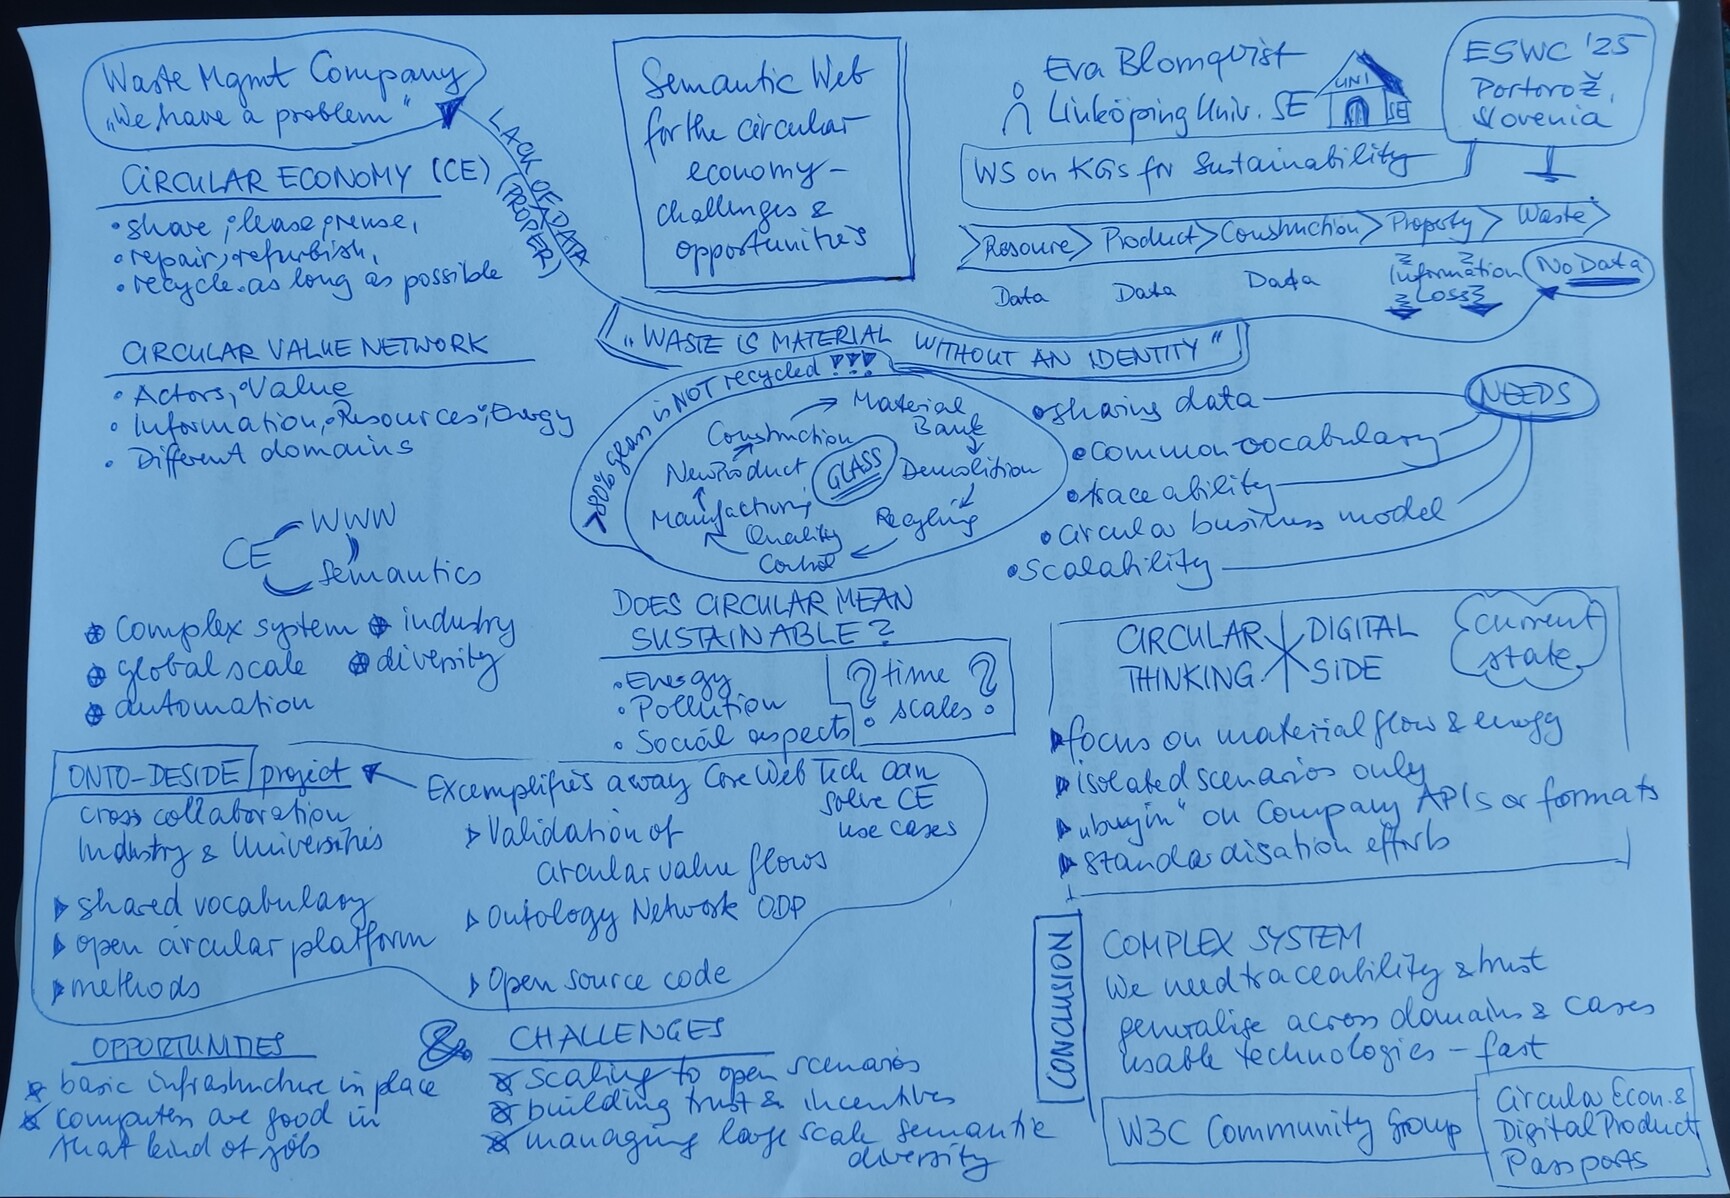 Waste Mgmt Company
„We have a problem"
LACK OF DATA
(PROPER)
Semantic Web
for the circular
economy –
challenges &
opportunities
Eva Blomqvist
Linköping Univ. SE
UNI
SE
ESWC '25
Portorož,
Slovenia
WS on KGs for Sustainability
CIRCULAR ECONOMY (CE)
• share, • lease, • reuse,
• repair, • refurbish,
• recycle • as long as possible
Resource > Product > Construction > Property > Waste
Data Data Data Information Loss
No Data
„WASTE IS MATERIAL WITHOUT AN IDENTITY"
CIRCULAR VALUE NETWORK
• Actors, • Value
• Information, • Resources, • Energy
• Different domains
>80% glass is NOT recycled !!!
GLASS
Construction
Material
Bank
Demolition
Recycling
Quality
Control
Manufacturing
New Product
NEEDS
• sharing data
• common vocabulary
• traceability
• circular business model
• scalability
CE
WWW
Semantics
complex system
industry
global scale
diversity
automation
DOES CIRCULAR MEAN
SUSTAINABLE?
• Energy
• Pollution
• Social aspects
? time ?
scales
CIRCULAR
THINKING
DIGITAL
SIDE
current
state
focus on material flow & energy
isolated scenarios only
„buy in" on Company APIs or formats
standardisation efforts
ONTO-DESIDE project
cross collaboration
Industry & Universities
shared vocabulary
open circular platform
methods
Excemplifies a way Core Web Tech can
solve CE
use cases
Validation of
circular value flows
Ontology Network ODP
Open source code
OPPORTUNITIES
basic infrastructure in place
computers are good in
that kind of job
&
CHALLENGES
scaling to open scenarios
building trust & incentives
managing large scale semantic
diversity
CONCLUSION
COMPLEX SYSTEM
We need traceability & trust
generalise across domains & cases
usable technologies – fast
W3C Community Group
Circular Econ. &
Digital Product
Passports